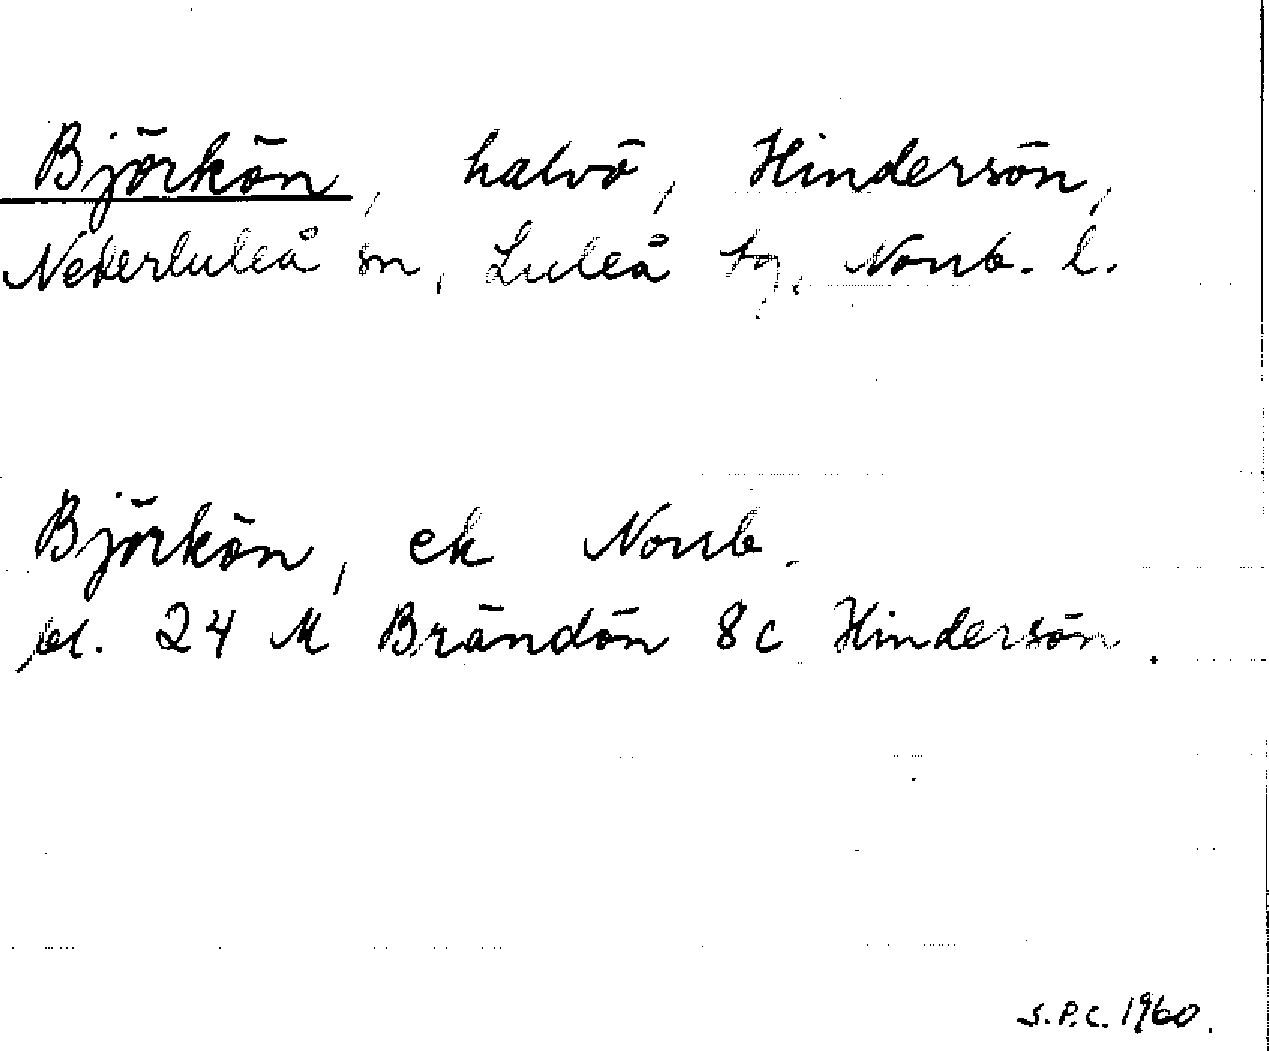 Björkön, halvö, Hindersön,
Nederluleå sn, Luleå tg, Norrb. l.
Björkön, ek Norrb.
bl. 24 M Brändön 8c Hindersön.
S.P.C. 1960.